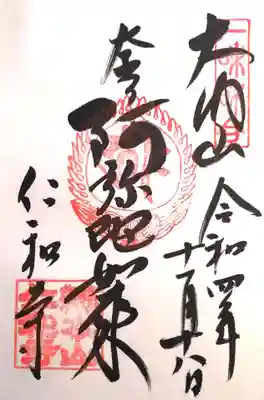 大内山
令和四年
十一月十八日
奉拝
阿弥陀如来
仁和寺